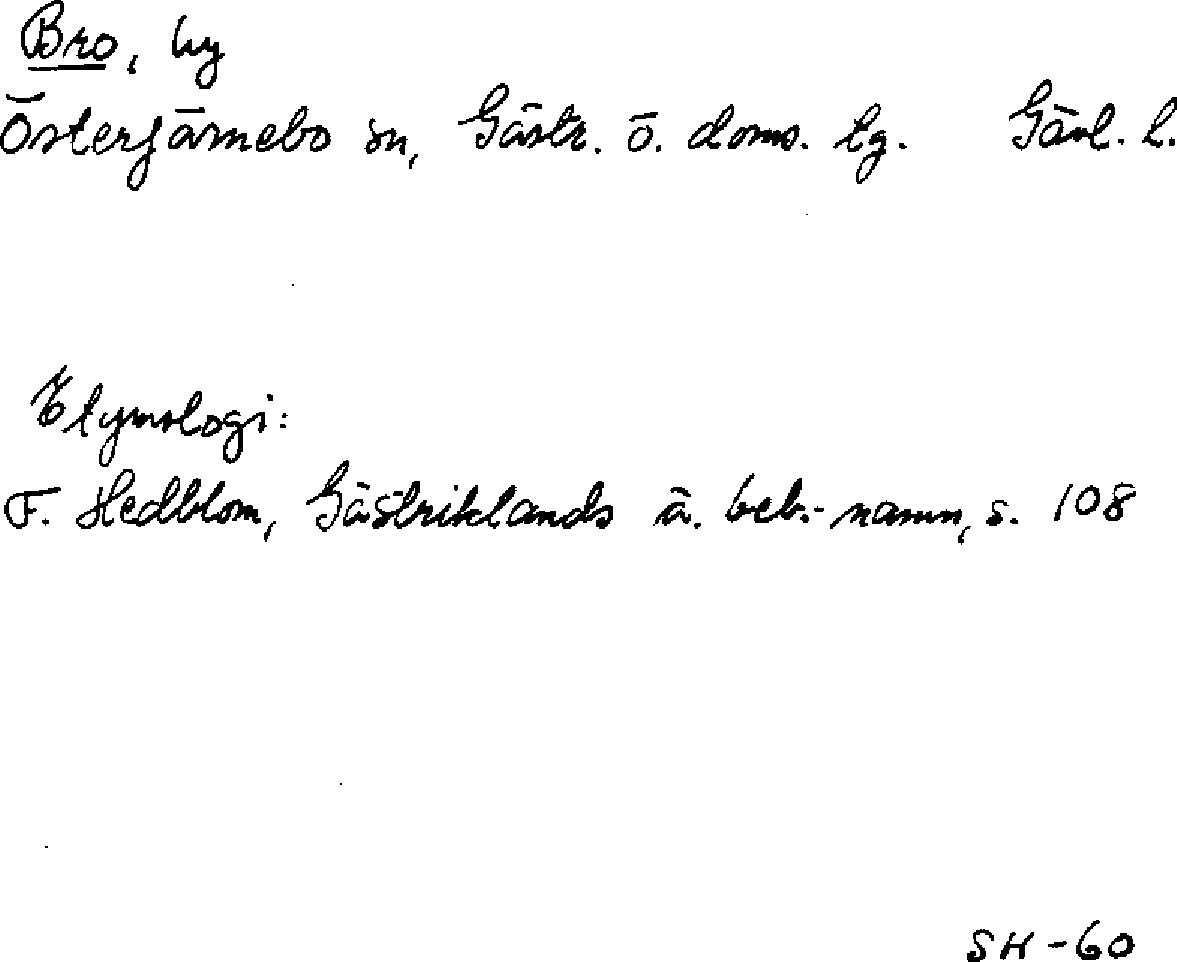 Bro, by
Österfärnebo sn, Gästr. ö. doms. tg. Gävl. l.
Etymologi:
F. Hedblom, Gästriklands ä. beb.-namn, s. 108
SH-60